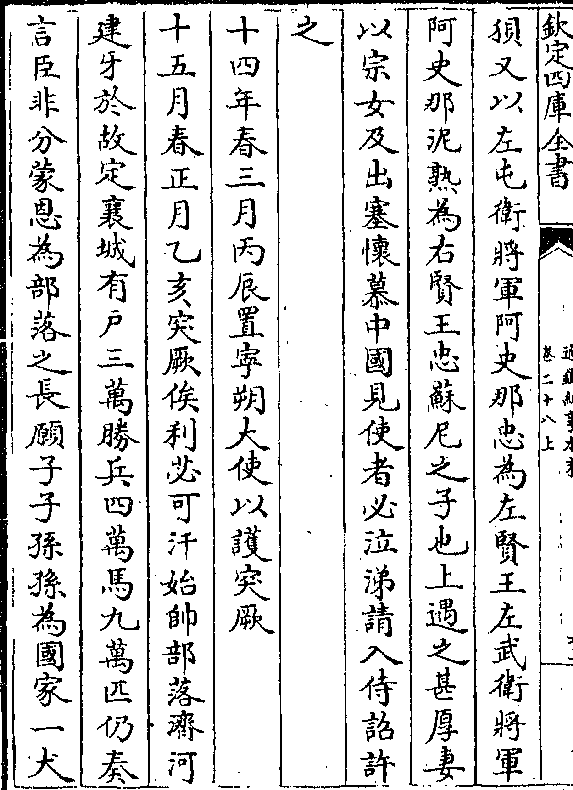 欽定四庫全書
卷二十八上
損又以左屯衛將軍阿史那忠為左賢王左武衛將軍
阿史那泥熟為右賢王忠蘇尼之子也上遇之甚厚妻
以宗女及出塞懷慕中國見使者必泣涕請入侍詔許
之
十四年春三月丙辰置寧朔大使以護突厥
十五月春正月乙亥突厥俟利苾可汗始帥部落濟河
建牙於故定襄城有戶三萬勝兵四萬馬九萬匹仍奏
言臣非分蒙恩為部落之長願子子孫孫為國家一犬